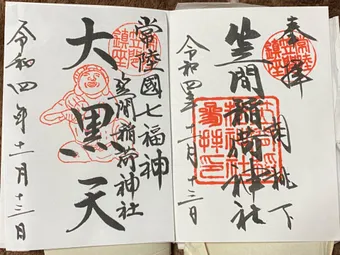 奉拝
胡桃下
笠間稲荷神社
令和四年十一月十三日
常陸國七福神
笠間稲荷神社
大黒天
令和四年十一月十三日